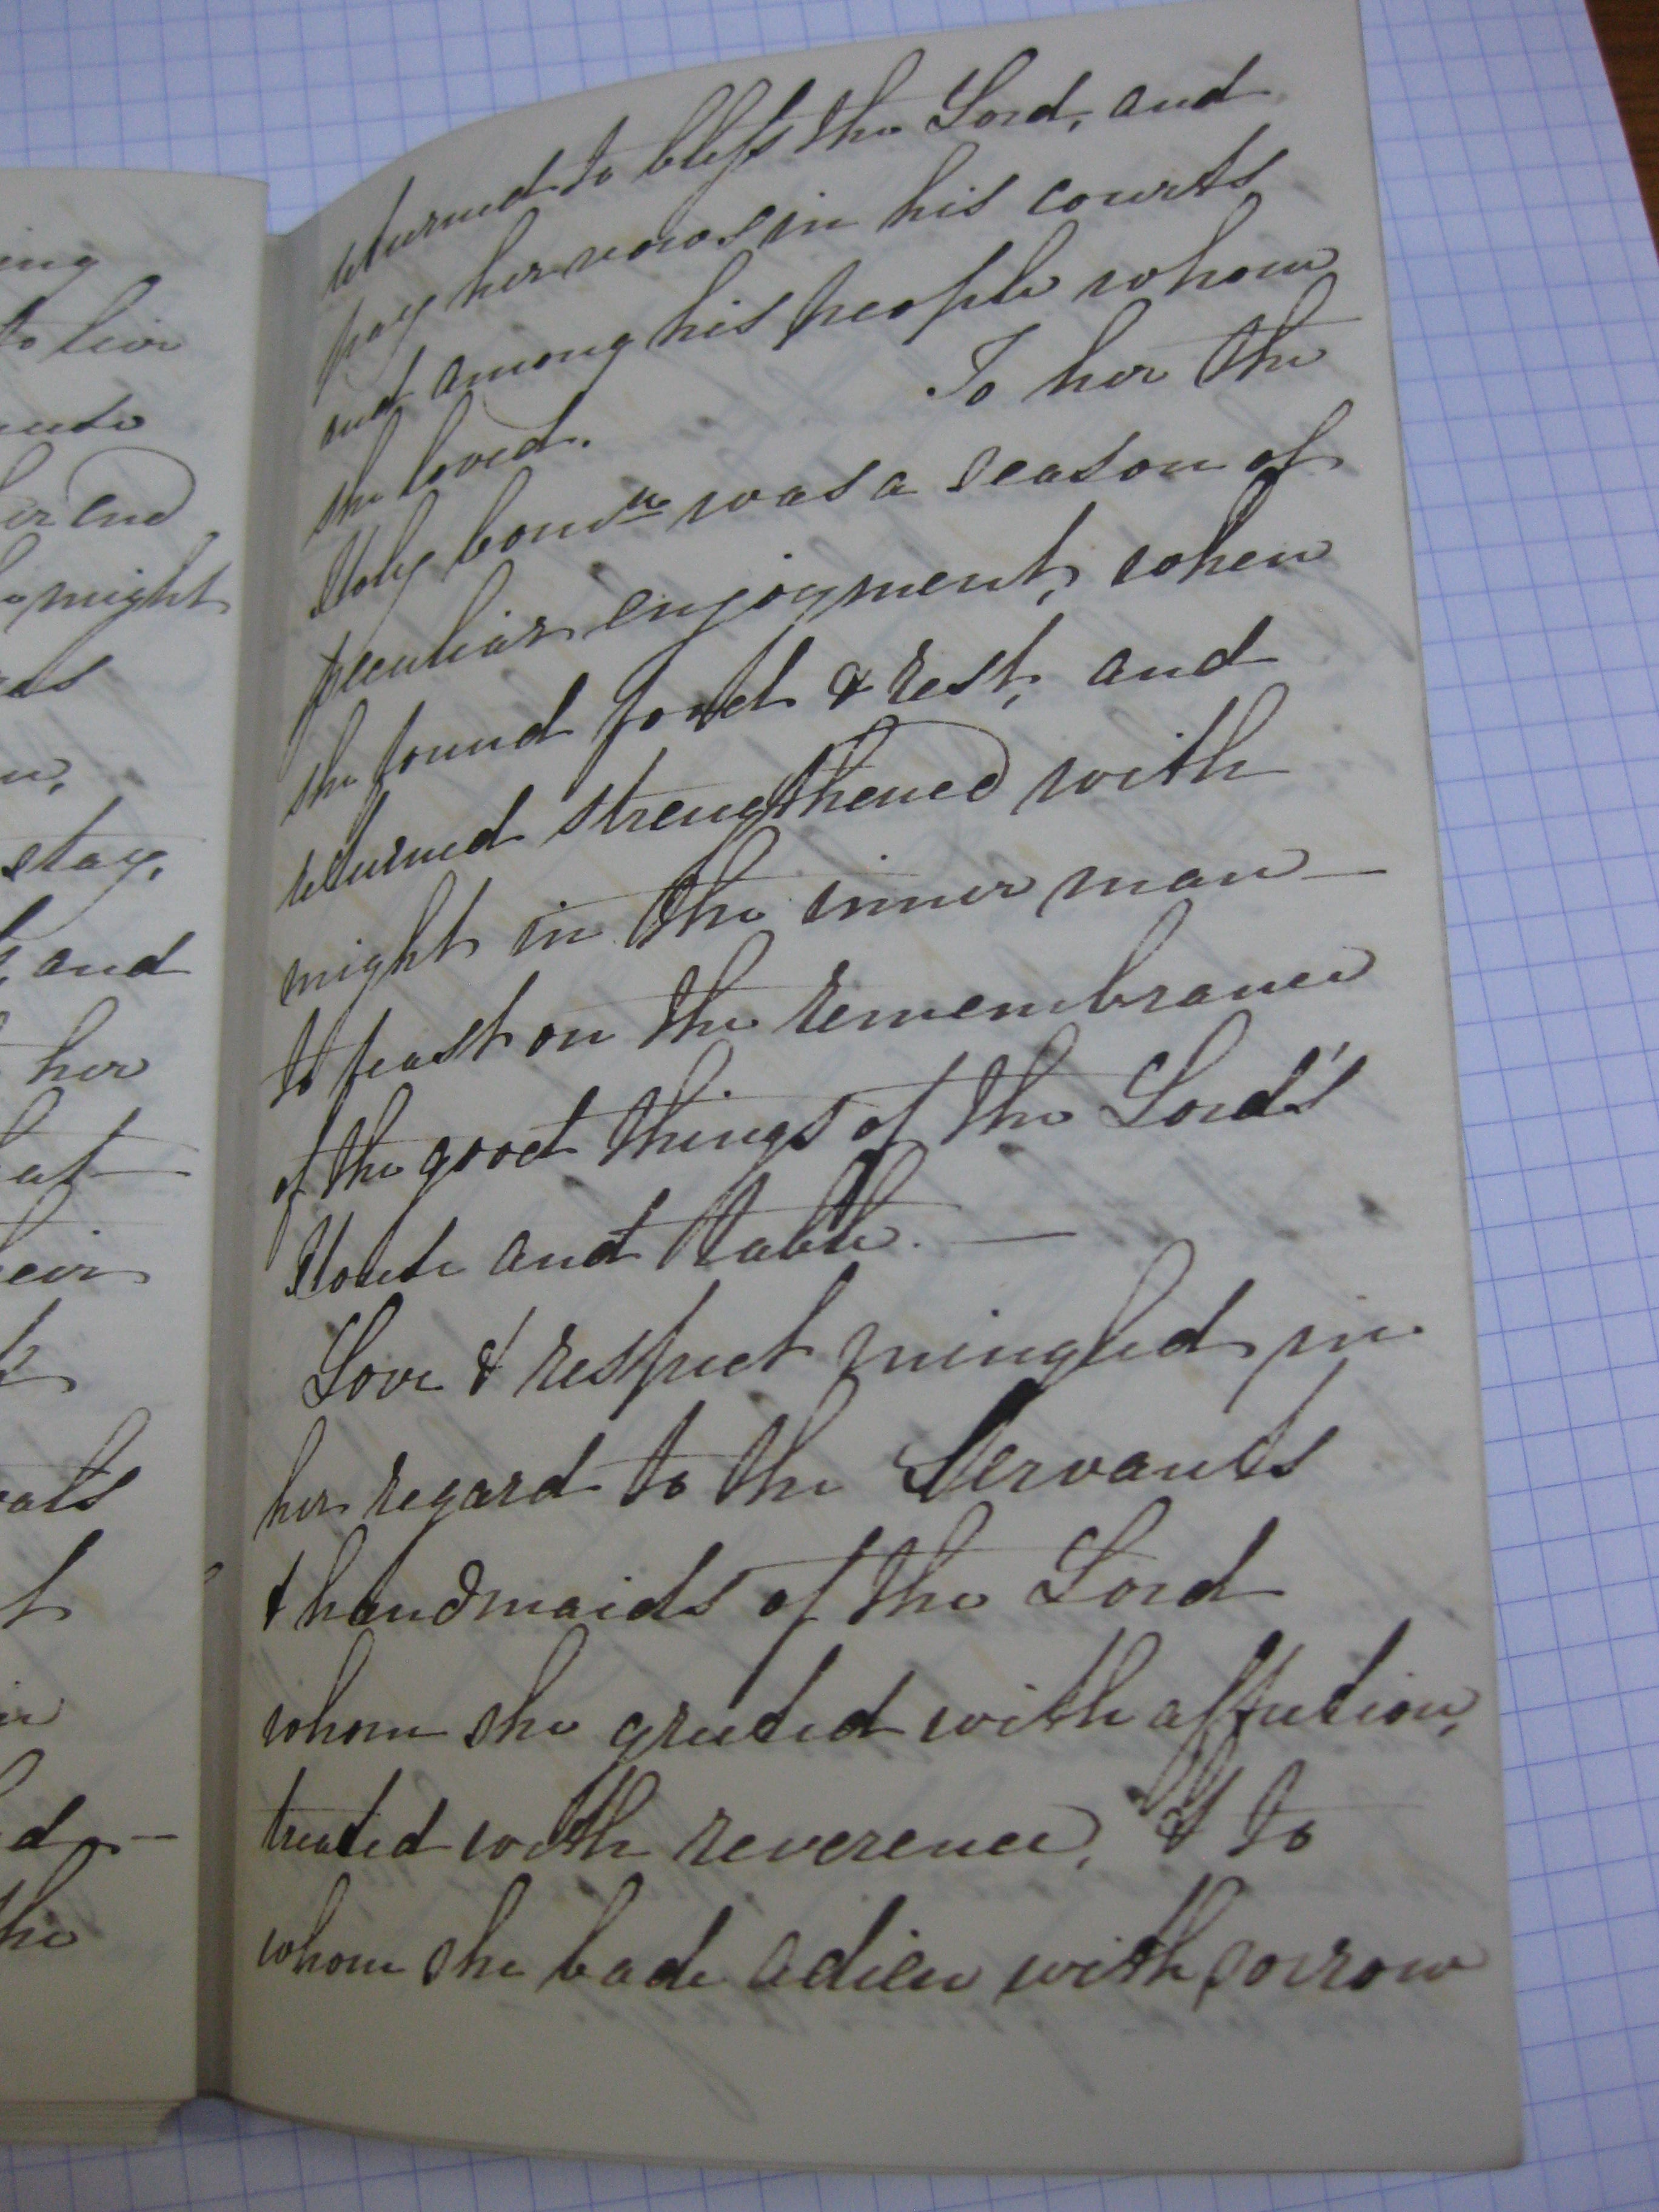 ing
to live
ute
her end
might
as
n,
stay,
and
her
at
heir
t
vats
t
in
d, —
the
returned to bless the Lord, and
pay her vows in his courts
and among his people whom
she loved. To her the
Holy Comn was a season of
peculiar enjoyment, when
she found food & rest, and
returned strengthened with
might in the inner man —
to feast on the remembrance
of the good things of the Lord's
House and table. —
Love & respect mingled in
her regard to the Servants
& handmaids of the Lord
whom she greeted with affection,
treated with reverence, & to
whom she bade adieu with sorrow